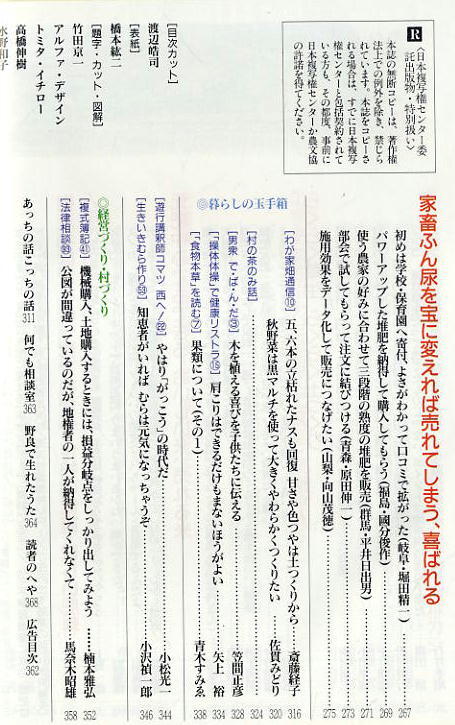 家畜ふん尿を宝に変えれば売れてしまう、喜ばれる
初めは学校・保育園へ寄付、よさがわかって口コミで拡がった(岐阜・堀田精一)……267
パワーアップした堆肥を納得して購入してもらう(福島・國分俊作)……269
使う農家の好みに合わせて三段階の熟度の堆肥を販売(群馬・平井日出男)……271
部会で試してもらって注文に結びつける(青森・原田伸一)……273
施用効果をデータ化して販売につなげたい(山梨・向山茂徳)……275
◎暮らしの玉手箱
[わが家畑通信⑩] 五、六本の立枯れたナスも回復 甘さや色つやは土つくりから……斎藤綾子 316
秋野菜は黒マルチを使って大きくやわらかくつくりたい……佐貫みどり 320
[村の茶のみ話]……324
[男衆 で・ば・ん・だ③] 木を植える喜びを子供たちに伝える……笠間正彦 328
[「操体体操」で健康リストラ⑮] 肩こりはできるだけもまないほうがよい……矢上 裕 334
[「食物本草」を読む⑦] 果類について(その1)……青木すみゑ 338
◎経営づくり・村づくり
[遊行講釈師コマツ 西へ/㉒] やはり「がっこう」の時代だ……小松光一 344
[生きいきむら作り㊿] 知恵者がいれば むらは元気になっちゃうぞ……小沢禎一郎 346
[複式簿記㊶] 機械購入、土地購入するときには、損益分岐点をしっかり出してみよう……楠本雅弘 352
[法律相談] 公図が間違っているのだが、地権者の一人が納得してくれなくて……馬奈木昭雄 358
あっちの話こっちの話 311 何でも相談室 363 野良で生れたうた 364 読者のへや 368 広告目次 362
R
〈日本複写権センター委
託出版物・特別扱い〉
本誌の無断コピーは、著作権
法上での例外を除き、禁じら
れています。本誌をコピーさ
れる場合は、すでに日本複写
権センターと包括契約されて
いる方も、その都度、事前に
日本複写権センターか農文協
の許諾を得てください。
[目次カット]
渡辺皓司
[表紙]
橋本紘二
[題字・カット・図解]
竹田京一
アルファ・デザイン
トミタ・イチロー
高橋伸樹
水野和子